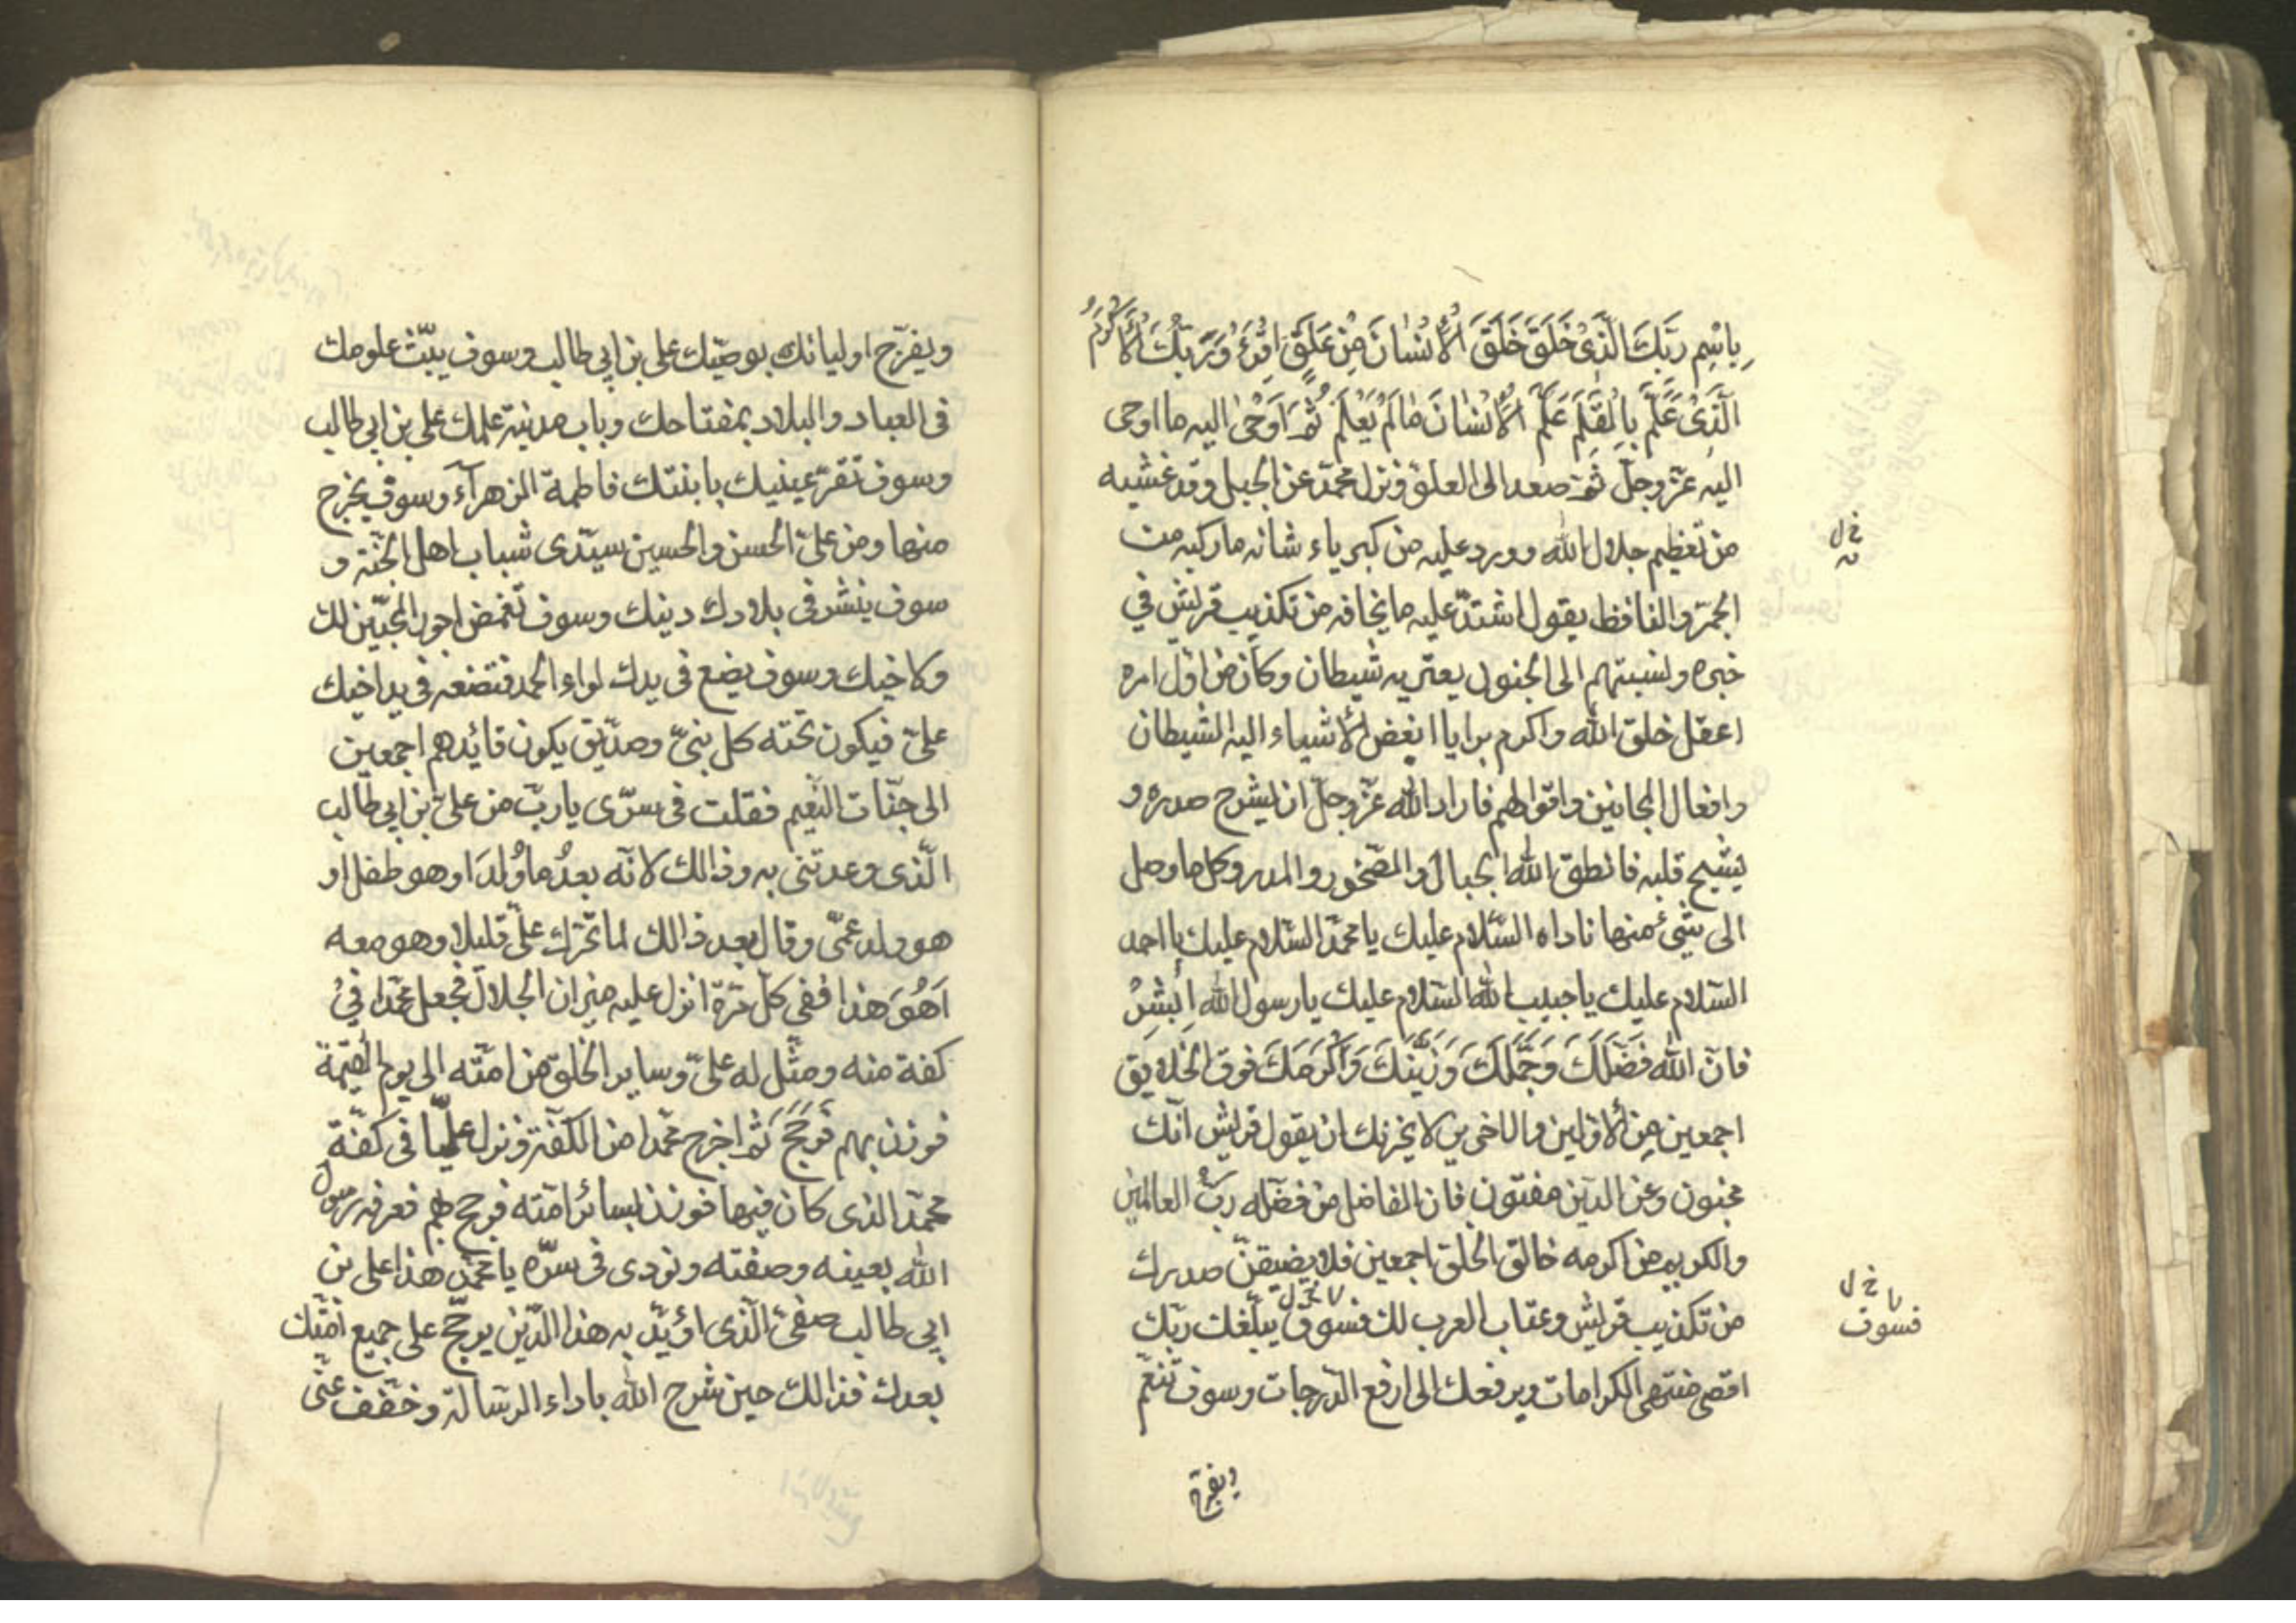 بِاسْمِ رَبِّكَ الَّذِىْ خَلَقَ خَلَقَ الْاِنْسٰانَ مِنْ عَلَقٍ اِقْرَءْ وَرَبُّكَ الْاَكْرَمُ
الَّذِىْ عَلَّمَ بِالْقَلَمِ عَلَّمَ الْاِنْسٰانَ مٰالَمْ يَعْلَمْ ثُمَّ اَوْحٰى اليه ما اوحى
اليه عزّ وجلّ ثمّ صعد الى العلوّ فنزل محمّد عن الجبل وقد غشيه
من تعظيم جلال الله وورد عليه من كبرياء شانه ما ركبه من
الحمّى والنافظ يقول اشتدّ عليه ما يخافه من تكذيب قريش في
خبره ونسبتهم الى الجنون يعتريه شيطان وكان من اوّل امره
اعقل خلق الله واكرم برايا ابغض الأشياء اليه الشيطان
وافعال المجانين واقوالهم فاراد الله عزّ وجلّ ان يشرح صدره و
يشيح قلبه فانطق الله الجبال والصّخور والمدر وكل ما وصل
الى شئ منها ناداه السّلام عليك يا محمّد السّلام عليك يا احمد
السّلام عليك يا حبيب الله السّلام عليك يا رسول الله اَبْشِرْ
فانّ الله فَضَّلَكَ وَجَمَّلَكَ وَزَيَّنَكَ وَاَكْرَمَكَ فوق الخلايق
اجمعين مِن الأوّلين والاخرين لا يحزنك ان يقول قريش انّك
مجنون وعن الدّين مفتون فان الفاضل من فضّله ربّ العالمين
والكريم من اكرمه خالق الخلق اجمعين فلا يضيقنّ صدرك
من تكذيب قريش وعتاب العرب لك فسوف يبلّغك ربّك
اقصى منتهى الكرامات ويرفعك الى ارفع الدّرجات وسوف تنعم
ويفرّح
خ ل
نه
خ ل
فسوف
ويفرّح اوليائك بوصيّك على بن ابي طالب وسوف يبثّ علومك
فى العباد والبلاد بمفتاحك وباب مدينة علمك على بن ابي طالب
وسوف تقرّ عينيك بابنتك فاطمة الزهرآء وسوف يخرج
منها ومن علىّ الحسن والحسين سيّدى شباب اهل الجنّة و
سوف ينشر فى بلادك دينك وسوف تغمض اجور المحبّين لك
ولاخيك وسوف يضع فى يدك لواء الحمد فتضعه فى يد اخيك
علىّ فيكون تحته كل نبىّ وصدّيق يكون قائدهم اجمعين
الى جنّات النّعيم فقلت فى سرّى يا ربّ من علىّ بن ابي طالب
الّذى وعدتنى به وذالك لانّه بعدُ ما وُلِدَ او هو طفل او
هو ولد عمّى وقال بعد ذالك لما تحرّك علىّ قليلا وهو معه
اَهُوَ هذا ففى كلّ مرّة انزل عليه ميزان الجلال فجعل محمّدا فىْ
كفة منه ومثّل له علىّ وساير الخلق من امّته الى يوم القيمة
فوزن بهم فَرَجَحَ ثمّ اخرج محمّدا من الكفّة ونزل عليّا فى كفّة
محمّد الذى كان فيها فوزن بسائر امّته فرجح بهم فعرفه رسول
الله بعينه وصفته ونودى فى سرّه يا محمّد هذا على بن
ابي طالب صفىّ الّذى اؤيّد به هذا الدّين يرجّح على جميع امّتك
بعدك فذالك حين شرح الله باداء الرّسالة وخفّف عنّى